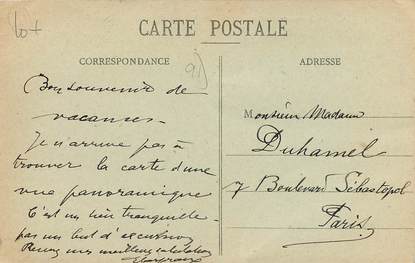 CARTE POSTALE
CORRESPONDANCE
ADRESSE
Bon souvenir de
vacances.
Je n'arrive pas à
trouver la carte d'une
vue panoramique
C'est un tranquille
pas un but d'excursion
Recevez mes meilleures salutations
Monsieur Madame
Duhamel
7 Boulevard Sébastopol
Paris